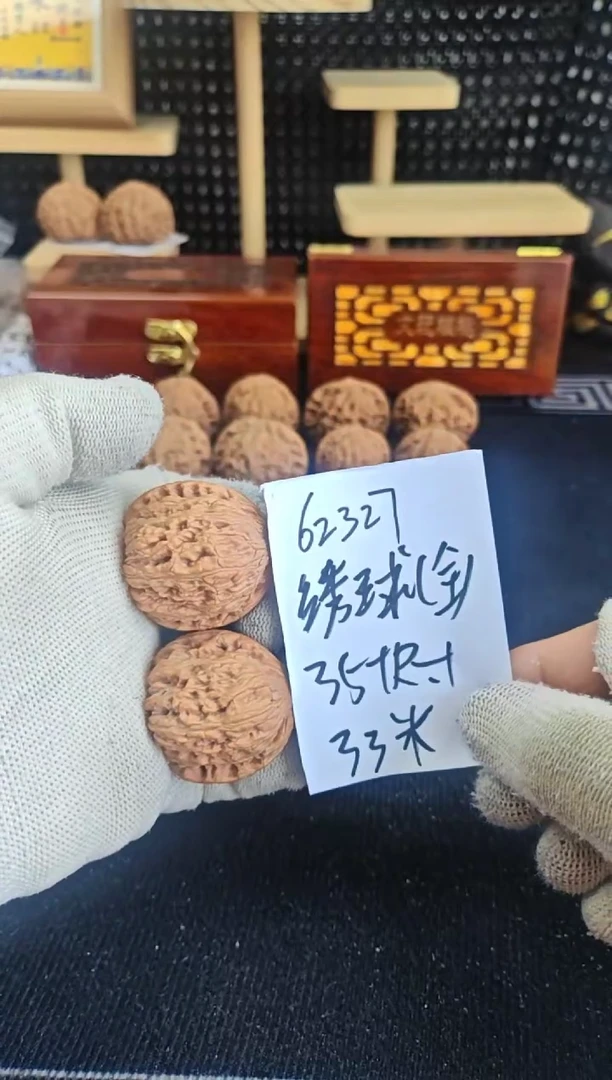 62327
绣球(全)
35+尺寸
33米